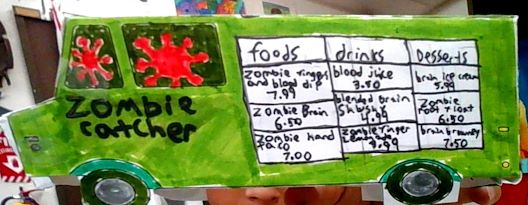 zombie
catcher
foods
drinks
Desserts
zombie finges
and blood dip
7.99
blood juice
3.50
brain ice cream
5.99
zombie Brain
6.50
blended brain
zombie
6.50
zombie hand
7.00
zombie finger
brain browney
7.50